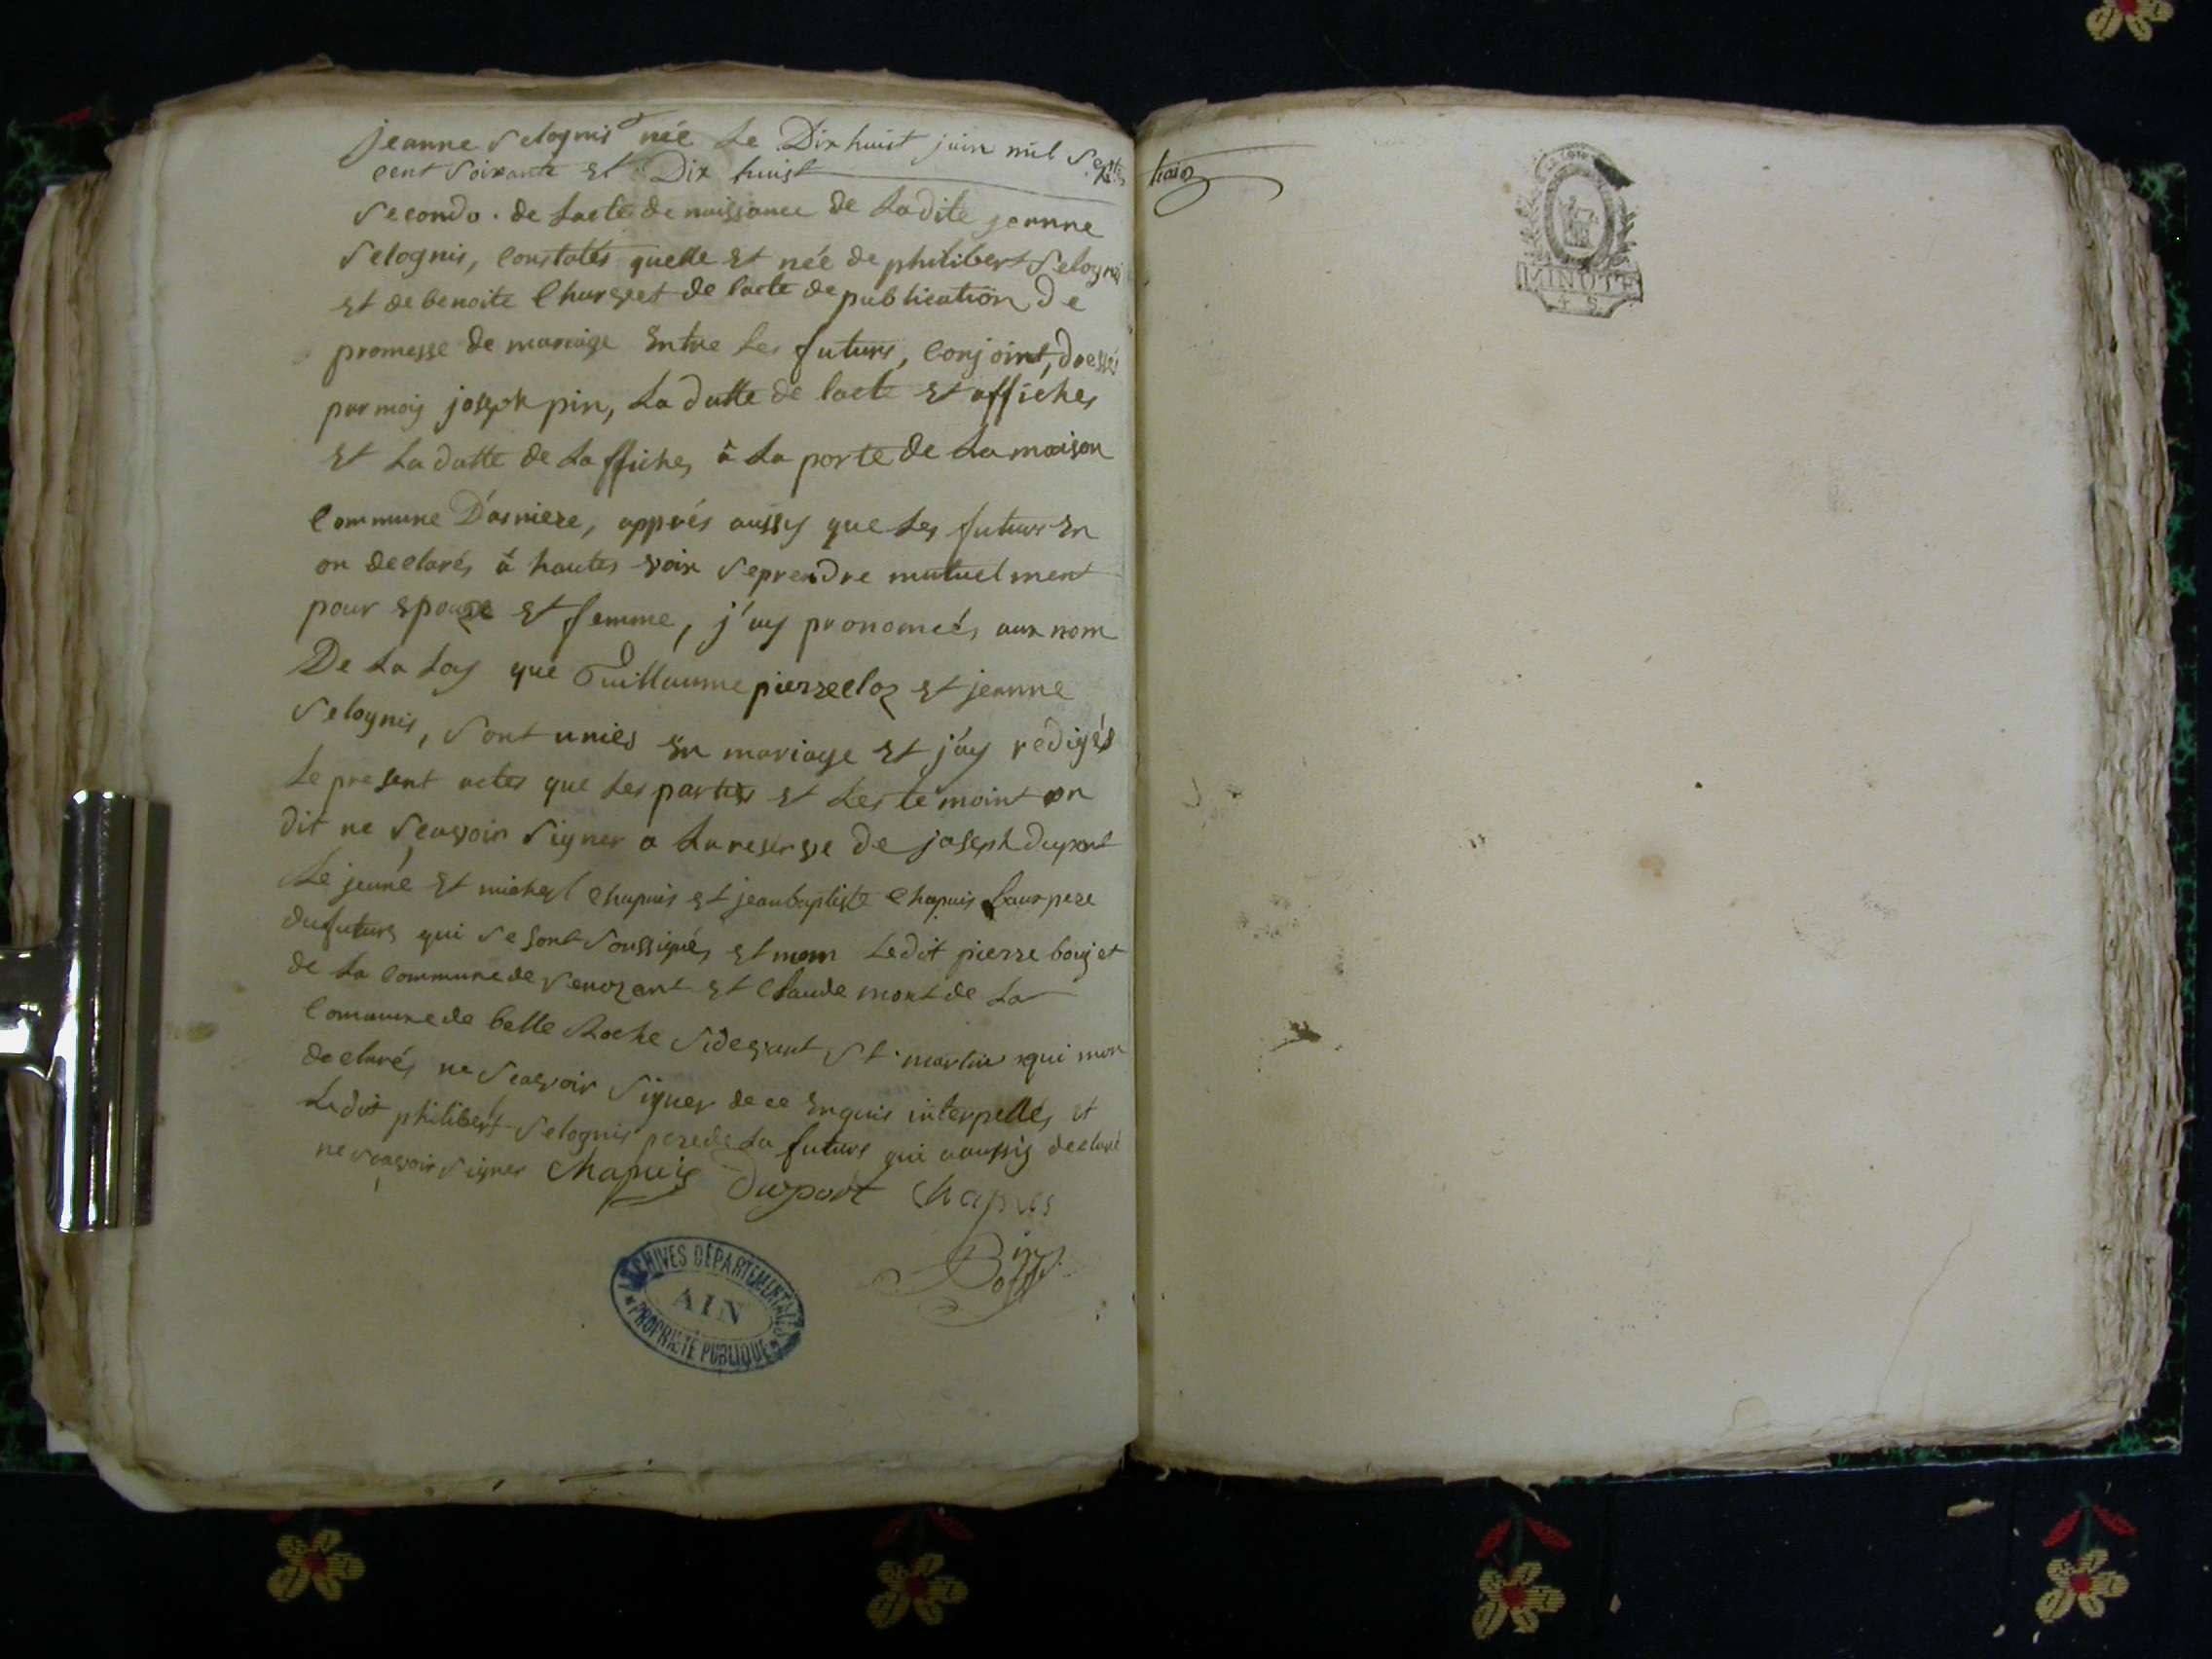 jeanne Selognis née Le Dix huit juin mil Sept
cent Soixante et Dix huist
Secondo. de Lacte de naissance de Ladite jeanne
Selognis, constatés quelle et née de philibert Selognis
et de benoite Churvet de lacte de publication De
promesse de mariage Entre Les futurs, Conjoint, dressés
par moy joseph pin, La datte de lacte et affiches
et La datte de Laffiches à La porte de La maison
Commune D'asniere, apprés aussy que Les futurs En
on declarés à hautes voix Seprendre mutuelment
pour epouse et femme, j'ay prononcés aux nom
De La Loy que Guillaume pierrecloz et jeanne
Selognis, Sont uniés En mariage et j'ay redigés
Le present actes que Les parties et Les temoint on
dit ne Sçavoir Signer a La reserve de joseph duport
Le jeune et michel Chapuis et jeanbaptiste Chapuis beaupere
dufuturs qui Se Sont Soussignés et Ledit pierre boujet
de La Commune de Senozant et Claude mont de La
Commune de belle Roche Sidevant St. martin qui mon
declarés ne Sçavoir Signer de ce Enquis interpellés et
Ledit philibert Selognis perede La future qui aaussis declaré
ne Sçavoir Signer Chapuis Duport Chapuis
pin
ARCHIVES DÉPARTEMENTALES
AIN
PROPRIÉTÉ PUBLIQUE
MINUTE
4 S.